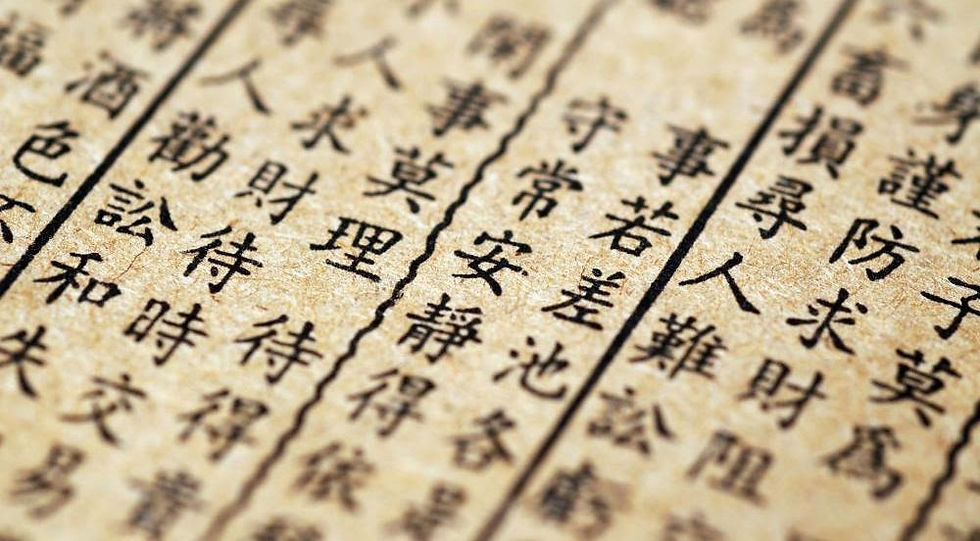 子莫為
謹防求財阻
畜損尋人難訟
為
事若差池各
守常安靜得依
鬧事莫理待得貴
人求財待時交易
尋人勸訟和失
酒色不
福